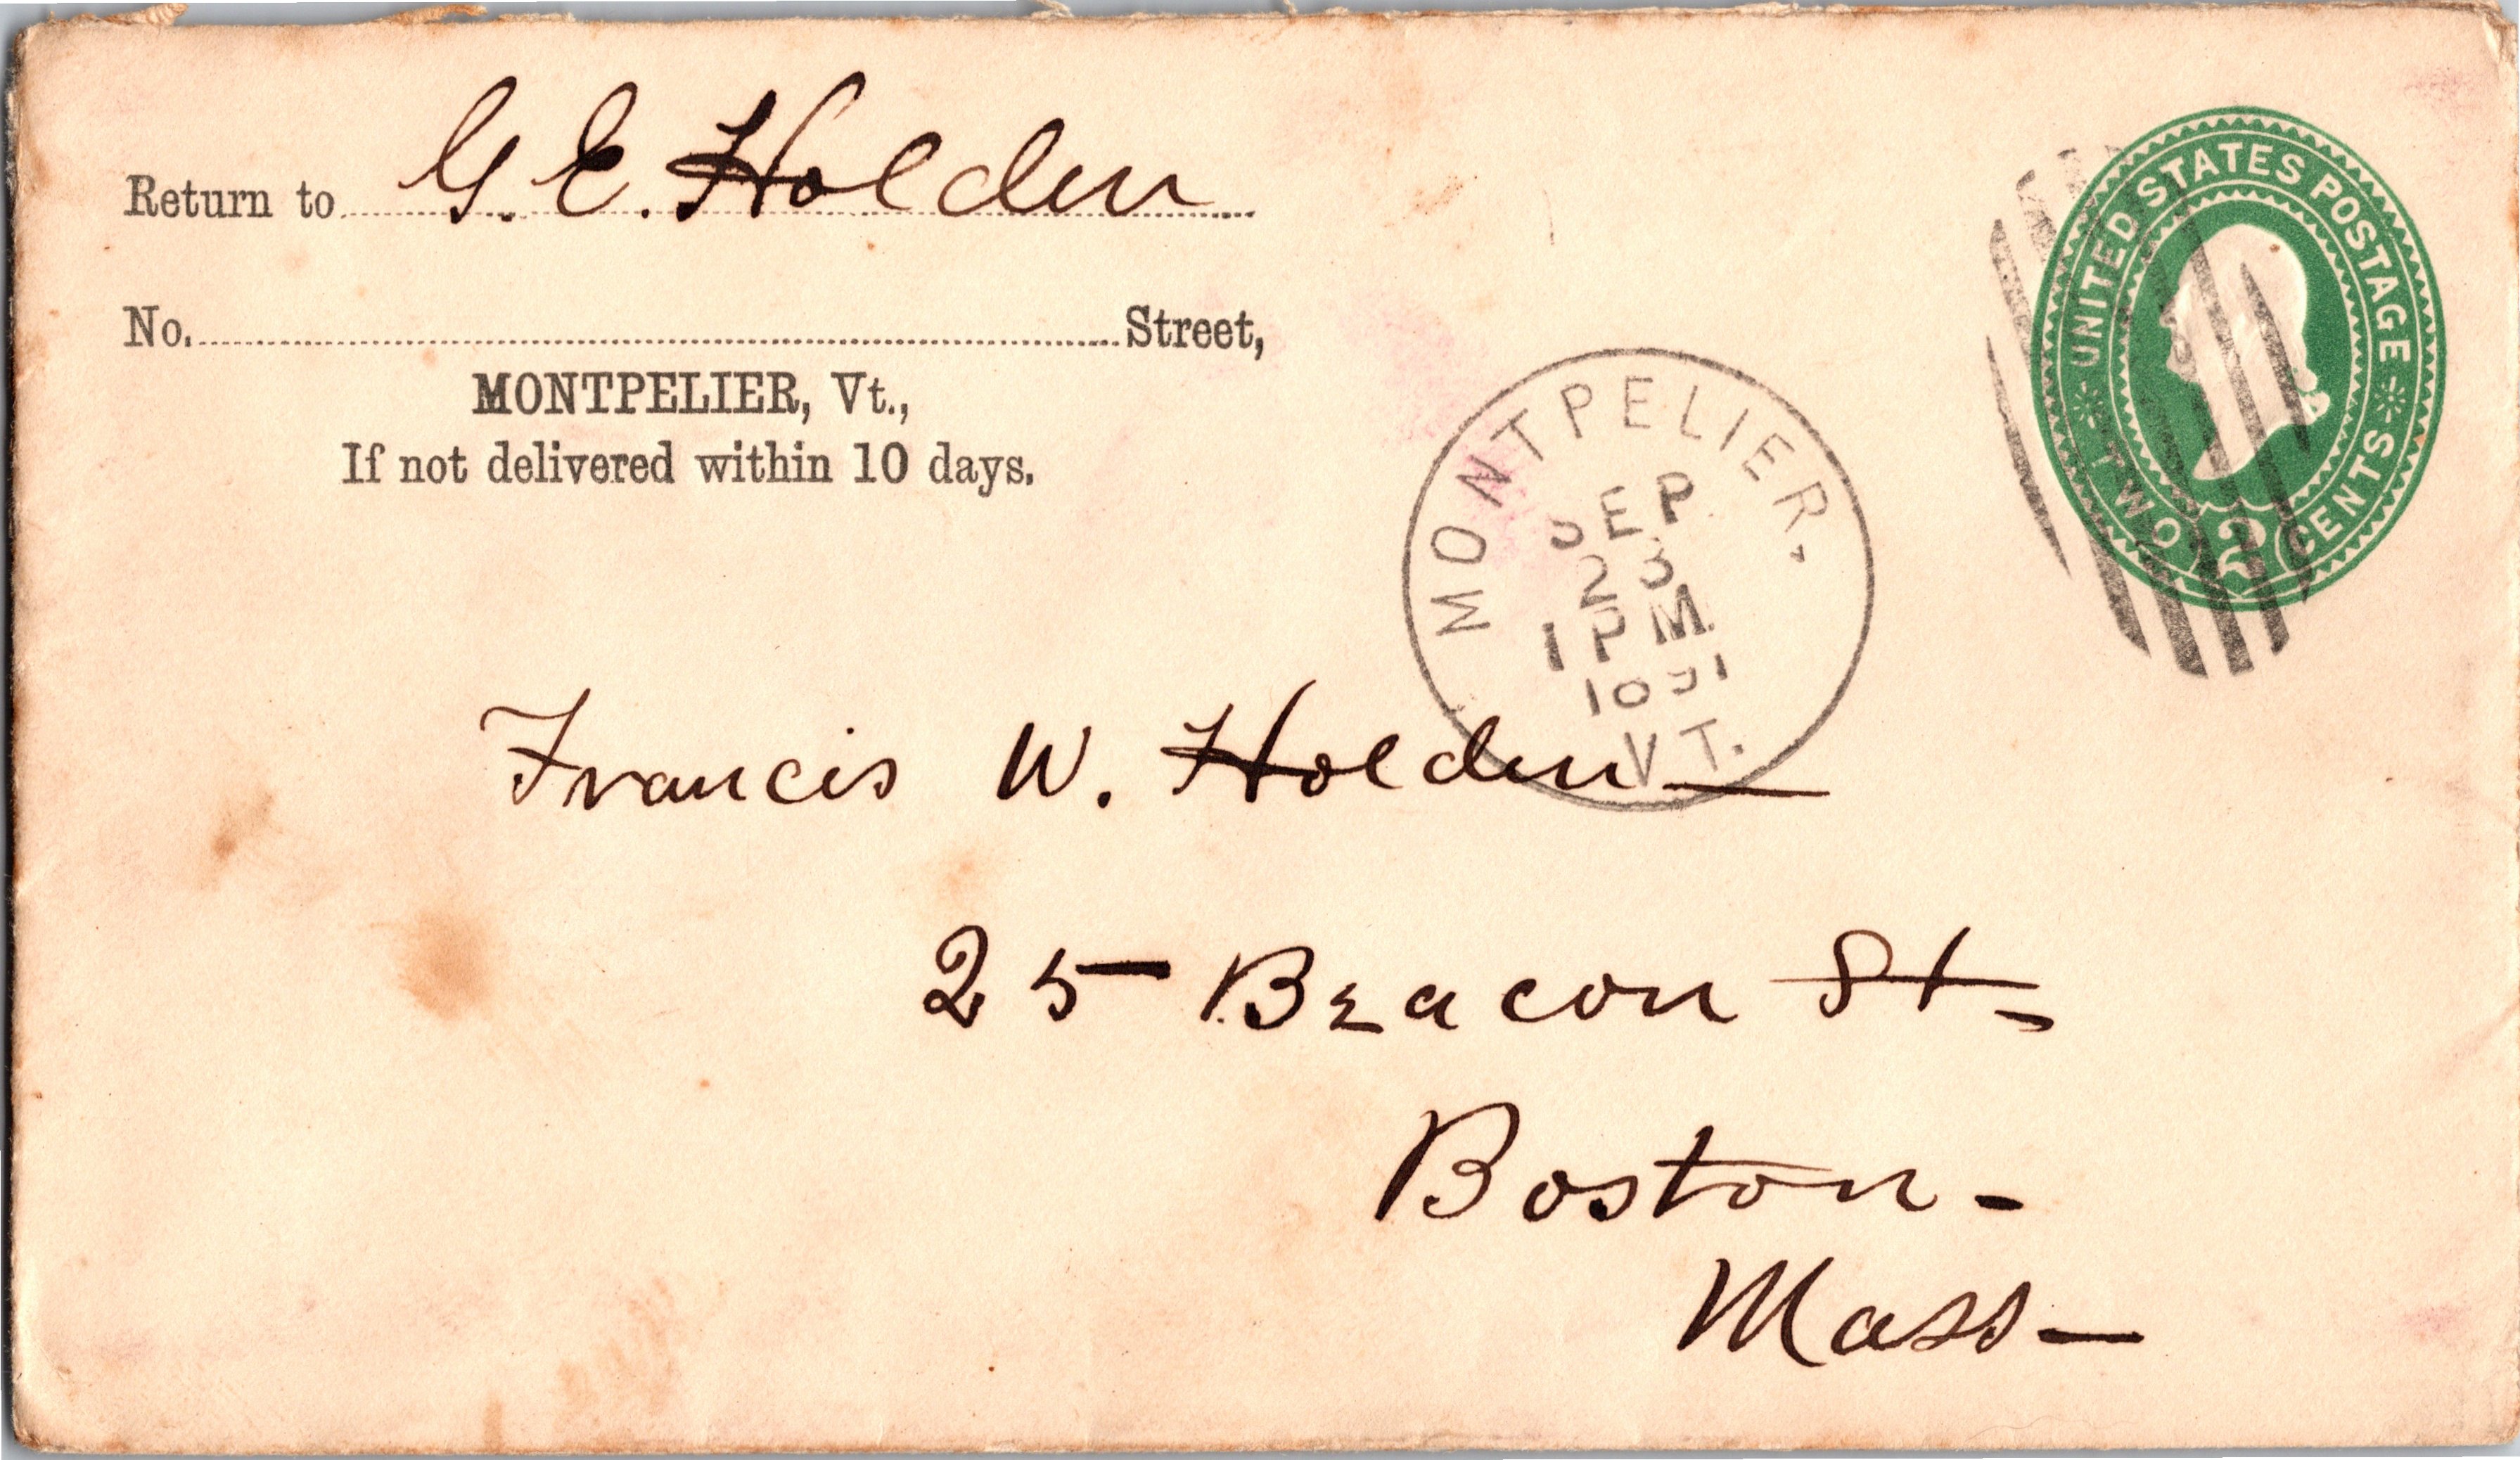 Return to G. E. Holden
No. Street,
MONTPELIER, Vt.,
If not delivered within 10 days.
UNITED STATES POSTAGE
TWO 2 CENTS
MONTPELIER,
SEP
23
1 PM
1891
VT.
Francis W. Holden
25 Beacon St-
Boston-
Mass-